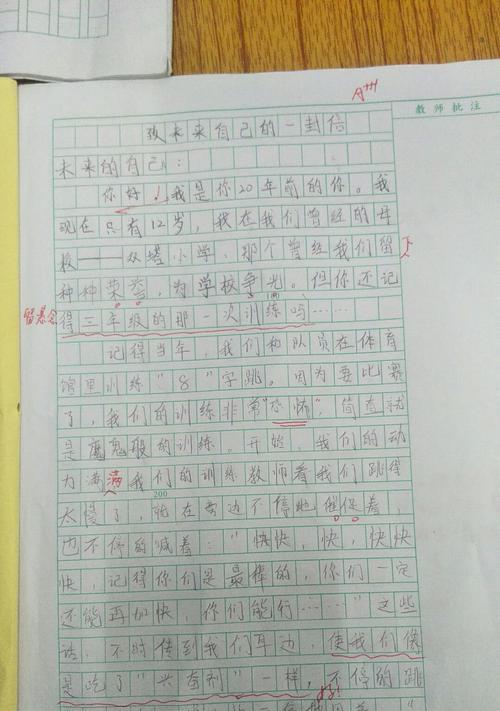 A+++
教师批注
致未来自己的一封信
未来的自己：
你好！我是你20年前的你。我
现在只有12岁，我在我们曾经的母
校——双塔小学，那个曾经我们留下
种种荣誉，为学校争光。但你还记
留悬念 得三年级的那一次训练吗……
记得当年，我们和队员在体育
馆里训练“8”字跳。因为要比赛
了，我们的训练非常“恐怖”，简直就
是魔鬼般的训练。开始，我们的动
力满满，我们的训练教师看我们跳得
200
太慢了，就在旁边不停地催促着，
也不停的喊着：“快快，快，快快
快，记得你们是最棒的，你们一定
还能再加快，你们能行……”这些
话，不时传到我们耳边，使我们像
是吃了“兴奋剂”一样，不停的跳
好！